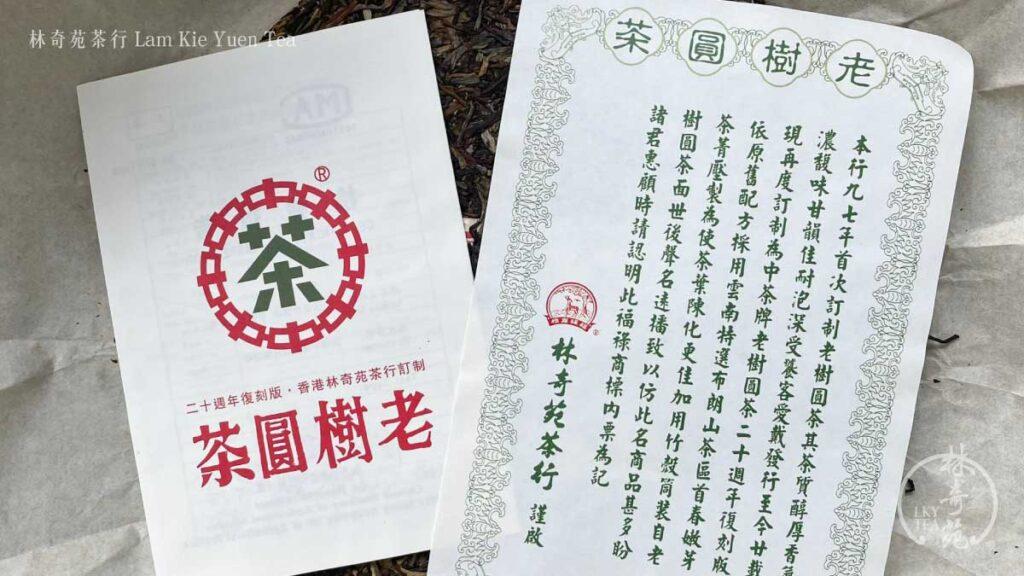 林奇苑茶行 Lam Kie Yuen Tea
®
茶
二十週年復刻版・香港林奇苑茶行訂制
老樹圓茶
老樹圓茶
本行九七年首次訂制老樹圓茶其茶質醇厚香氣
濃馥味甘韻佳耐泡深受饕客愛戴發行至今廿載
現再度訂制為中茶牌老樹圓茶二十週年復刻版
依原舊配方採用雲南特選布朗山茶區首春嫩芽
茶菁壓製為使茶葉陳化更佳加用竹殼筒裝自老
樹圓茶面世後聲名遠播致以仿此名商品甚多盼
諸君惠顧時請認明此福祿商標內票為記
林奇苑茶行 謹啟
林奇苑
LKY
TEA